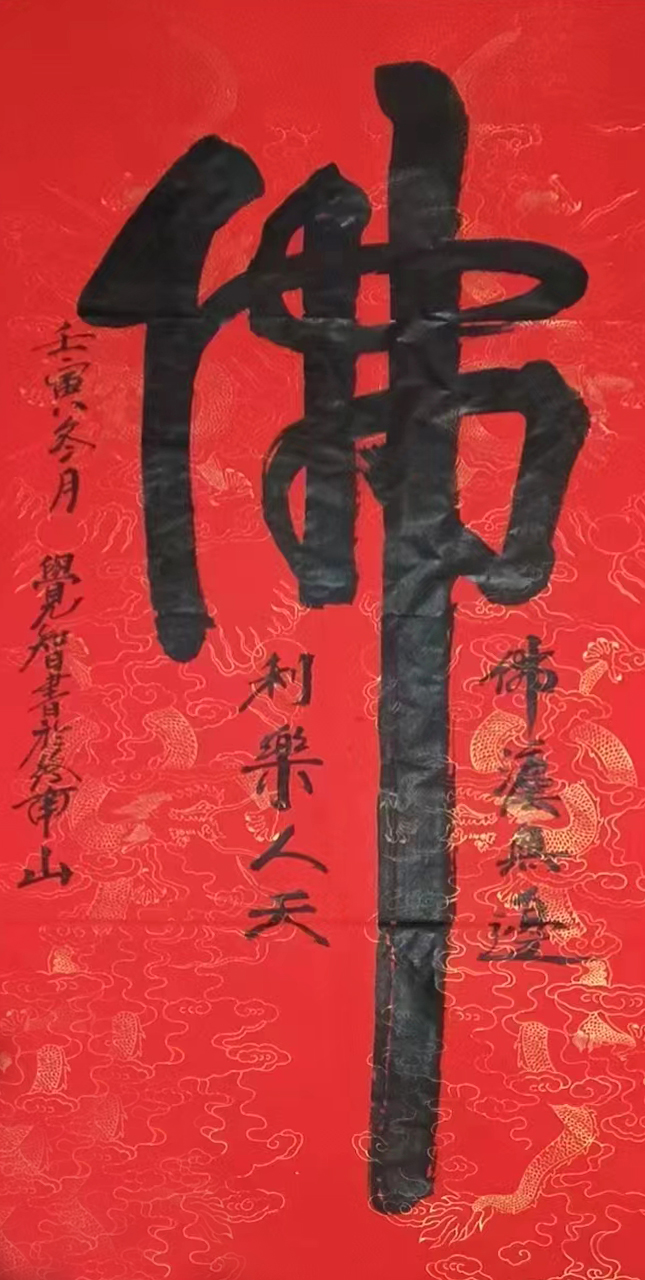 佛
佛灋無邊
利樂人天
壬寅冬月 覺智書於終南山